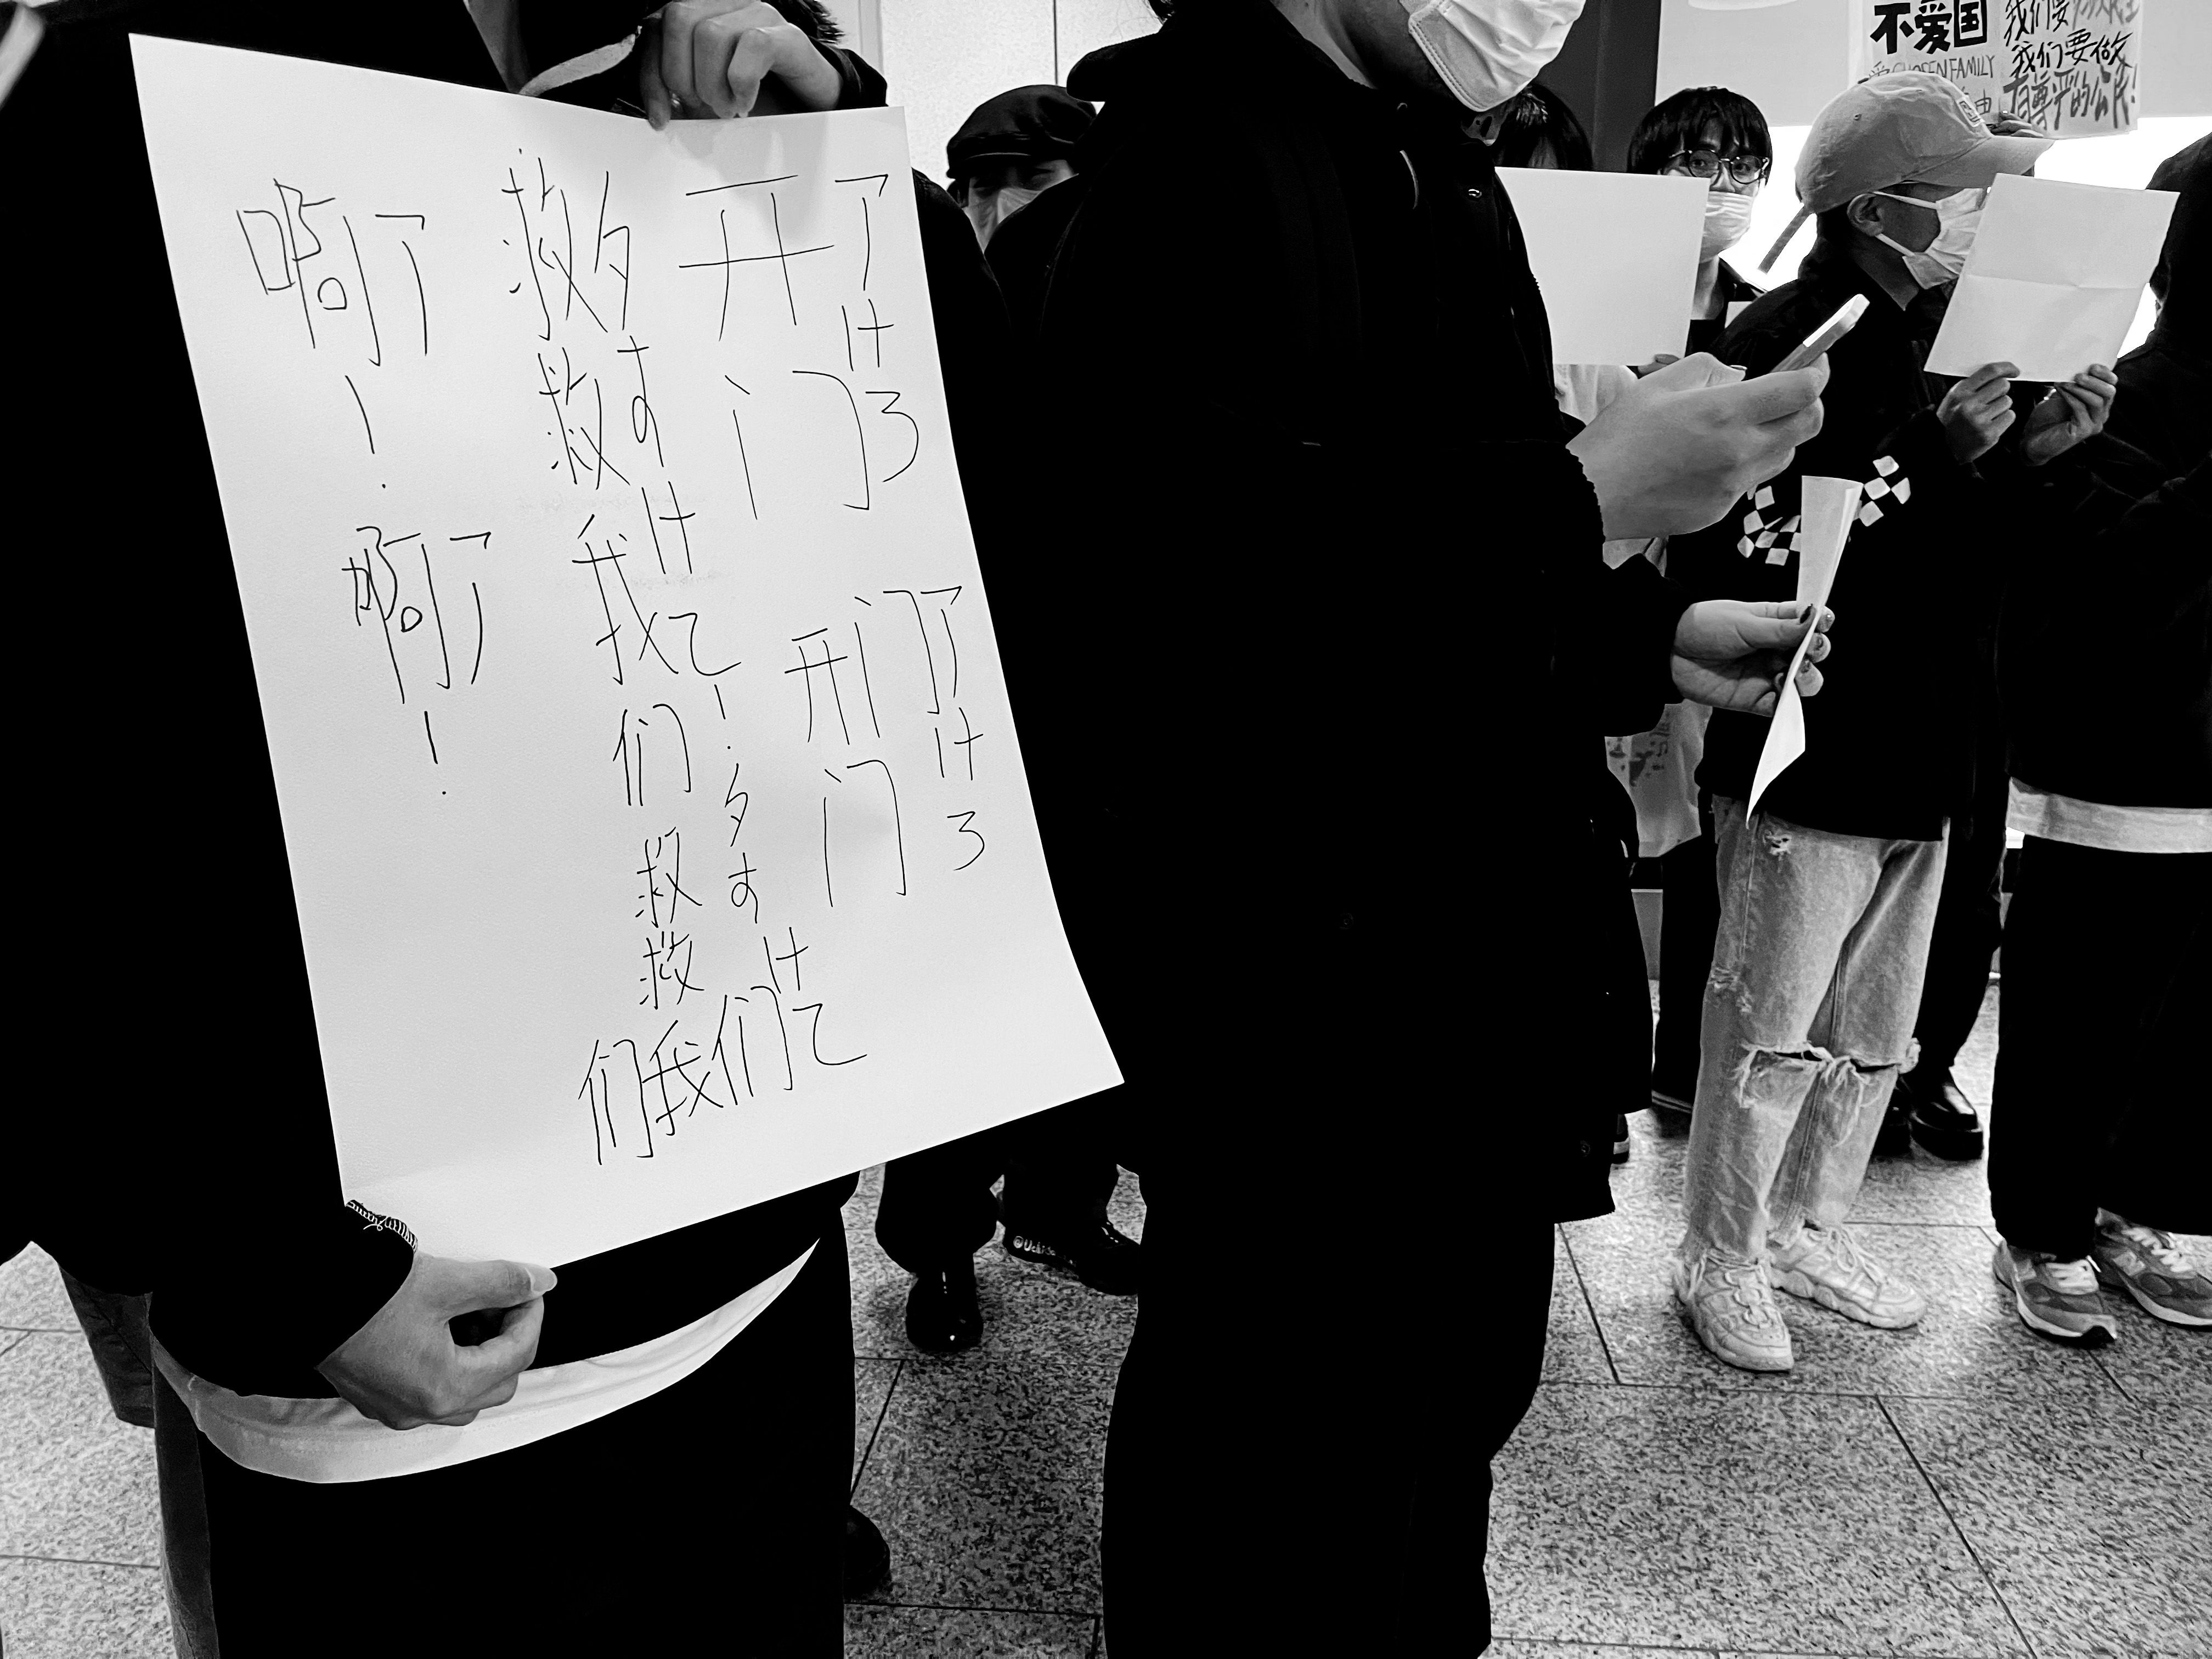 アけろ アけろ
开门 开门
タすけて！タすけて
救救我们救救们我们
啊ア！啊ア！
不爱国
爱CHOSEN FAMILY
我们要
我们要做
有尊严的公民！